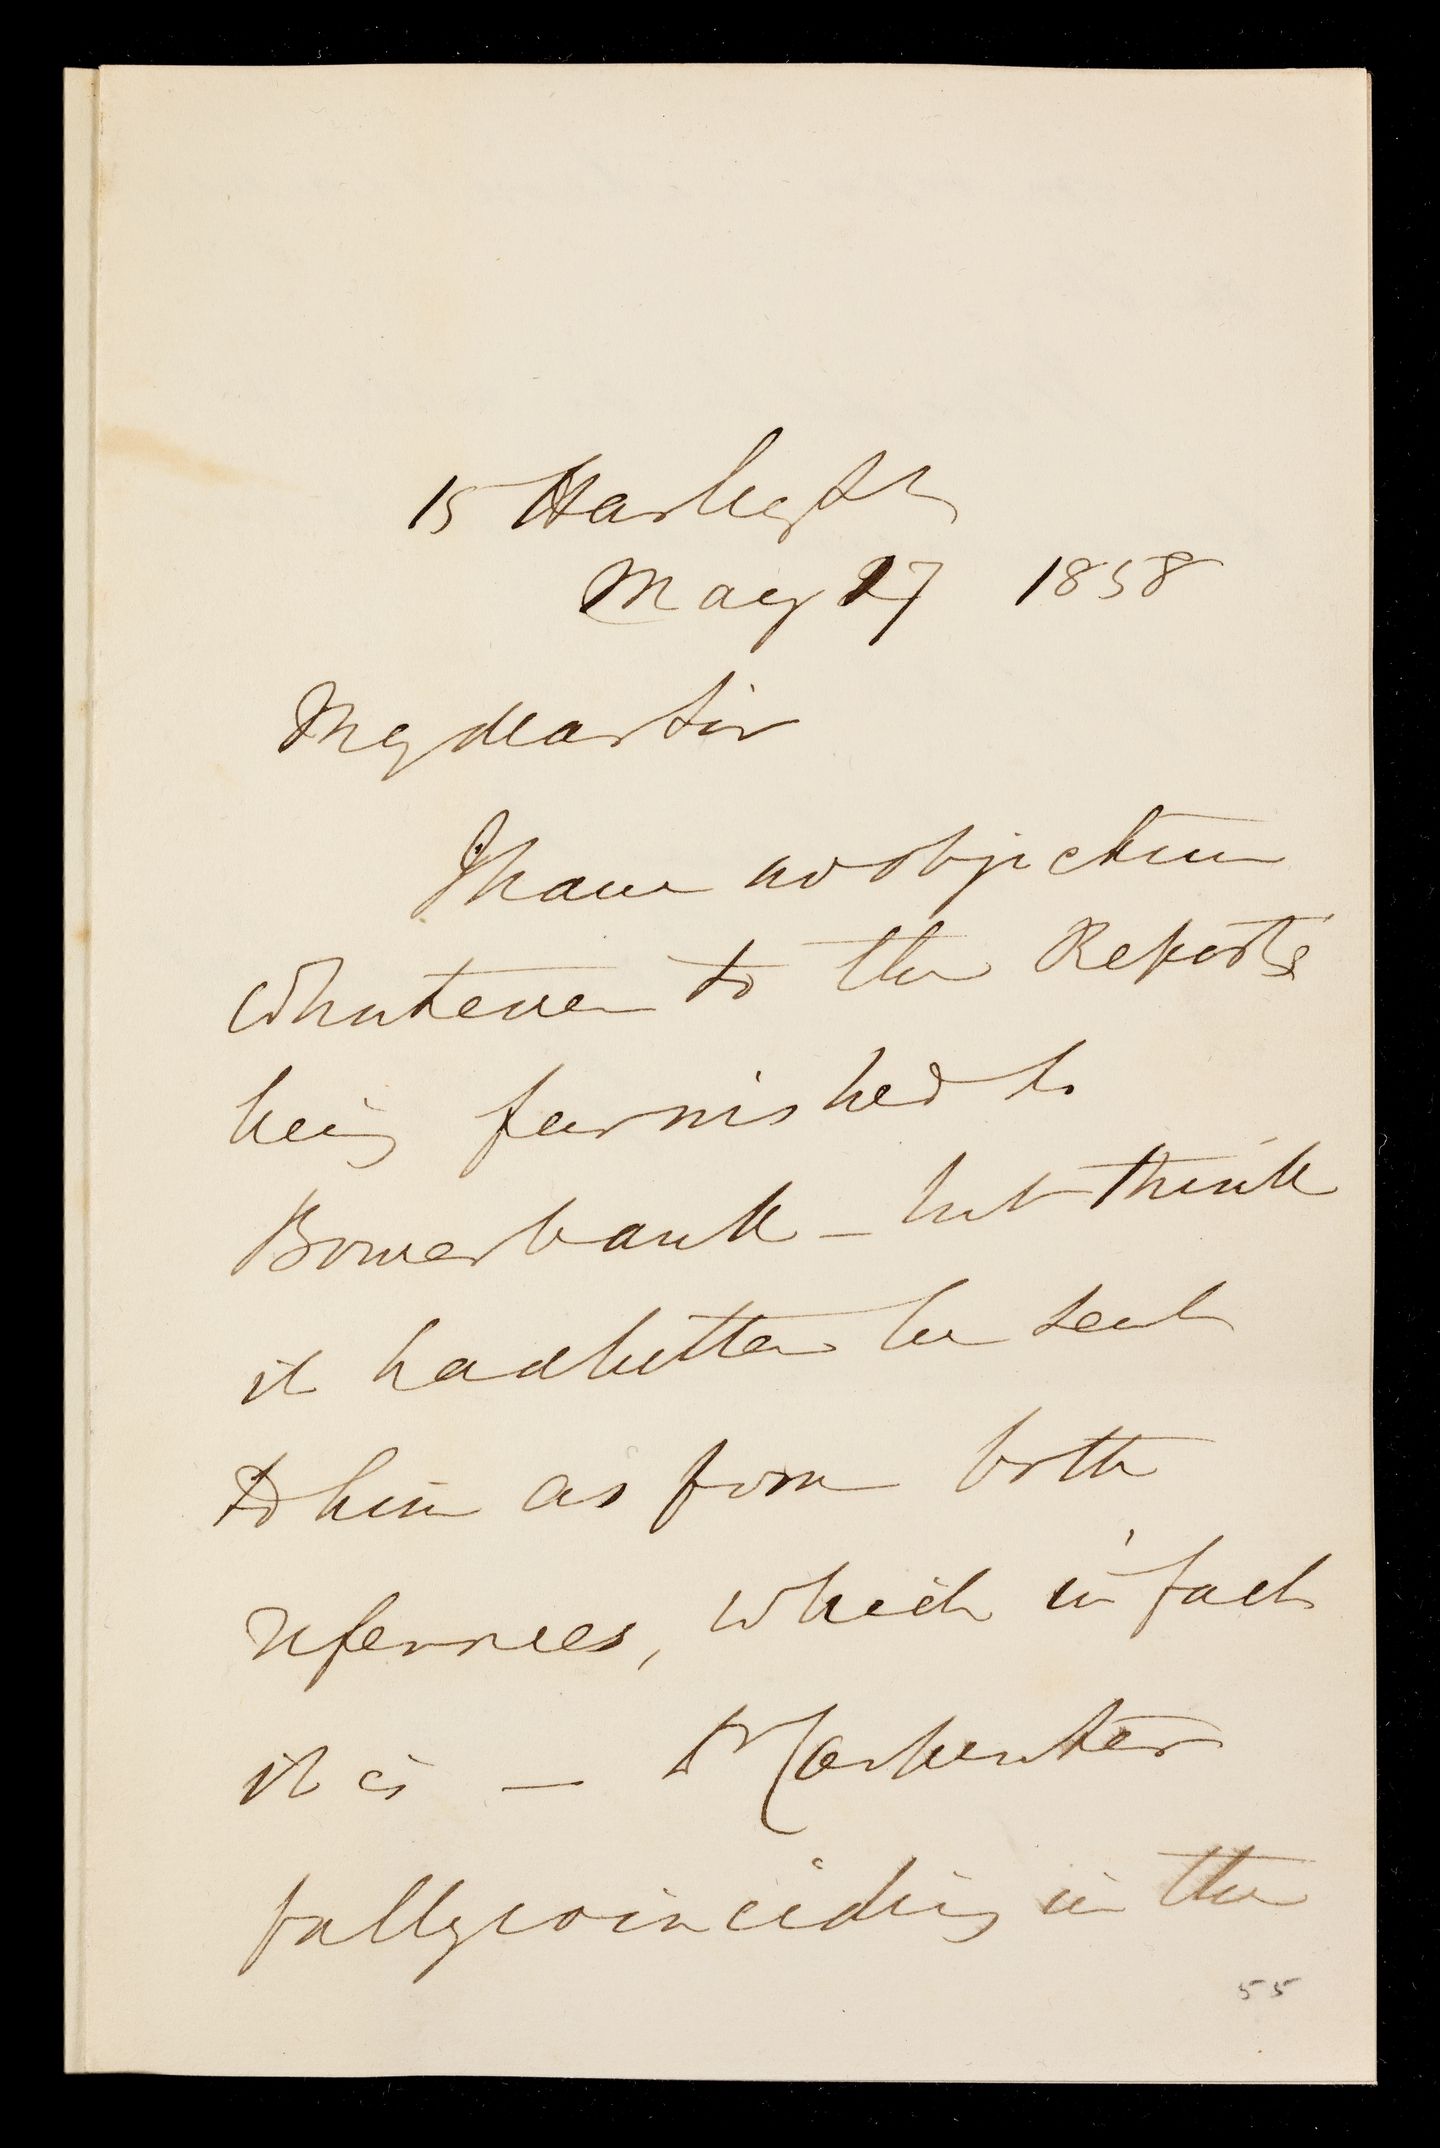 15 Harley St
May 27 1858
My dear Sir
I have no objection
whatever to the Reports
being furnished to
Bowerbank – but think
it had better be sent
to him as from both
referees, which in fact
it is – Dr Carpenter
fully coinciding in the
55